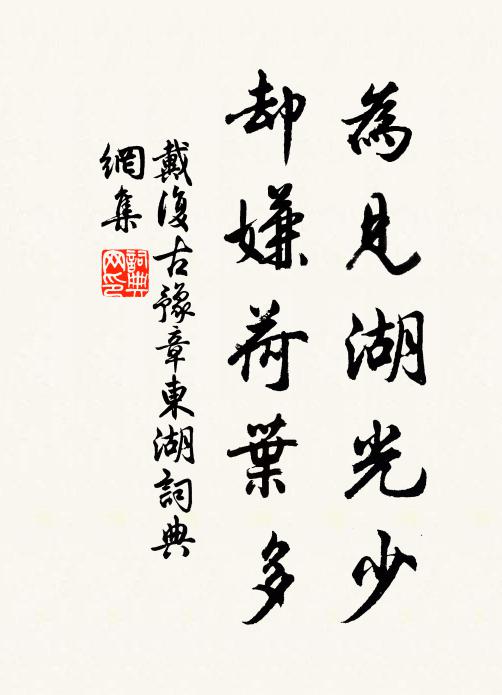 為見湖光少
却嫌荷葉多
戴復古豫章東湖詞典
網集
詞典
网印